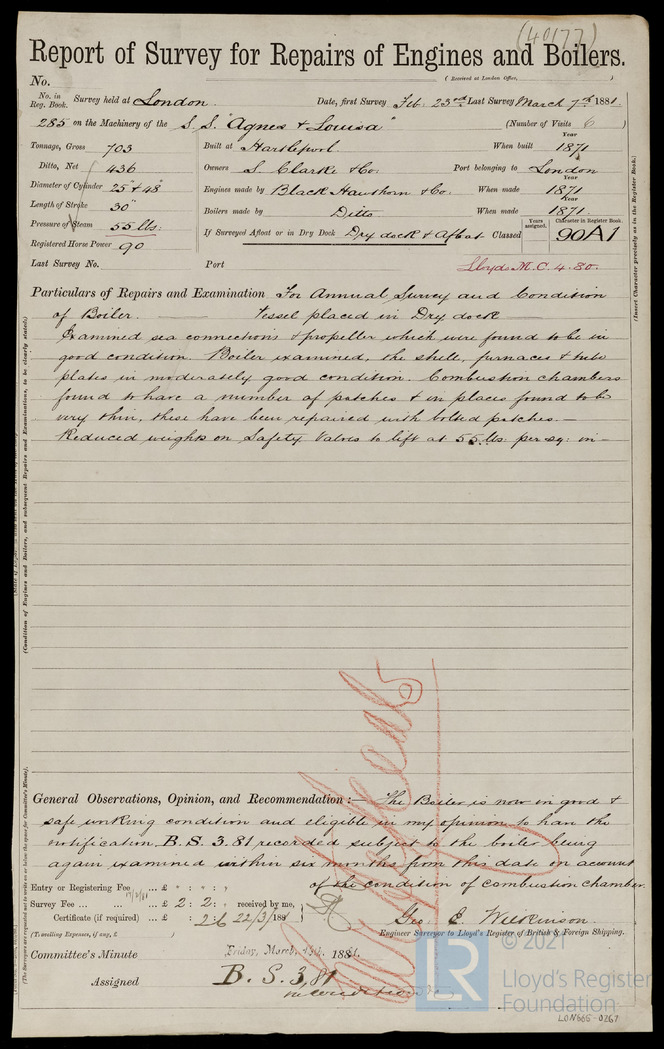 (40177)
Report of Survey for Repairs of Engines and Boilers.
No.
(Received at London Office, )
No. in Reg. Book. Survey held at London Date, first Survey Feb. 23rd Last Survey March 7th 1881.
285 on the Machinery of the S.S. "Agnes & Louisa" (Number of Visits 6 )
Tonnage, Gross 703 Built at Hartlepool. When built Year 1871
Ditto, Net 436 Owners S. Clarke & Co: Port belonging to London
Diameter of Cylinder 25" & 48" Engines made by Black Hawthorn & Co: When made Year 1871
Length of Stroke 30" Boilers made by Ditto When made Year 1871
Pressure of Steam 55 lbs: If Surveyed Afloat or in Dry Dock Dry dock & Afloat Classed Years assigned. Character in Register Book. 90A1
Registered Horse Power 90
Last Survey No. Port Lloyds M.C. 4.80.
(Insert Character precisely as in the Register Book.)
Particulars of Repairs and Examination For Annual Survey and Condition
of Boiler. — Vessel placed in Dry dock —
Examined sea connections & propeller which were found to be in
good condition. Boiler examined, the shell, furnaces & tube
plates in moderately good condition. Combustion chambers
found to have a number of patches & in places found to be
very thin, these have been repaired with bolted patches. —
Reduced weights on Safety Valves to lift at 55 lbs: per sq: in —
(Condition of Engines and Boilers, and subsequent Repairs and Examinations, to be clearly stated.)
General Observations, Opinion, and Recommendation:— The Boiler is now in good &
safe working condition and eligible in my opinion to have the
notification B.S. 3.81 recorded subject to the boiler being
again examined within six months from this date on account
of the condition of combustion chamber.
Entry or Registering Fee ... £ " : " : "
Survey Fee ... ... ... £ 2 : 2 : " received by me,
Certificate (if required) ... £ : 2 : 6 22/3/1881
(Travelling Expenses, if any, £ )
Geo. E. Wilkinson.
Engineer Surveyor to Lloyd's Register of British & Foreign Shipping.
Committee's Minute Friday, March 1881.
Assigned B.S. 3,81
(The Surveyors are requested not to write on or below the space for Committee's Minute).
© 2021
LR
Lloyd's Register
Foundation
LON665-0267